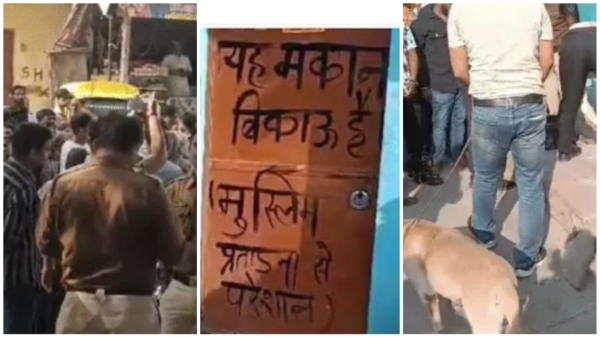 SH
यह मकान
बिकाऊ है
(मुस्लिम
प्रताड़ना से
परेशान)